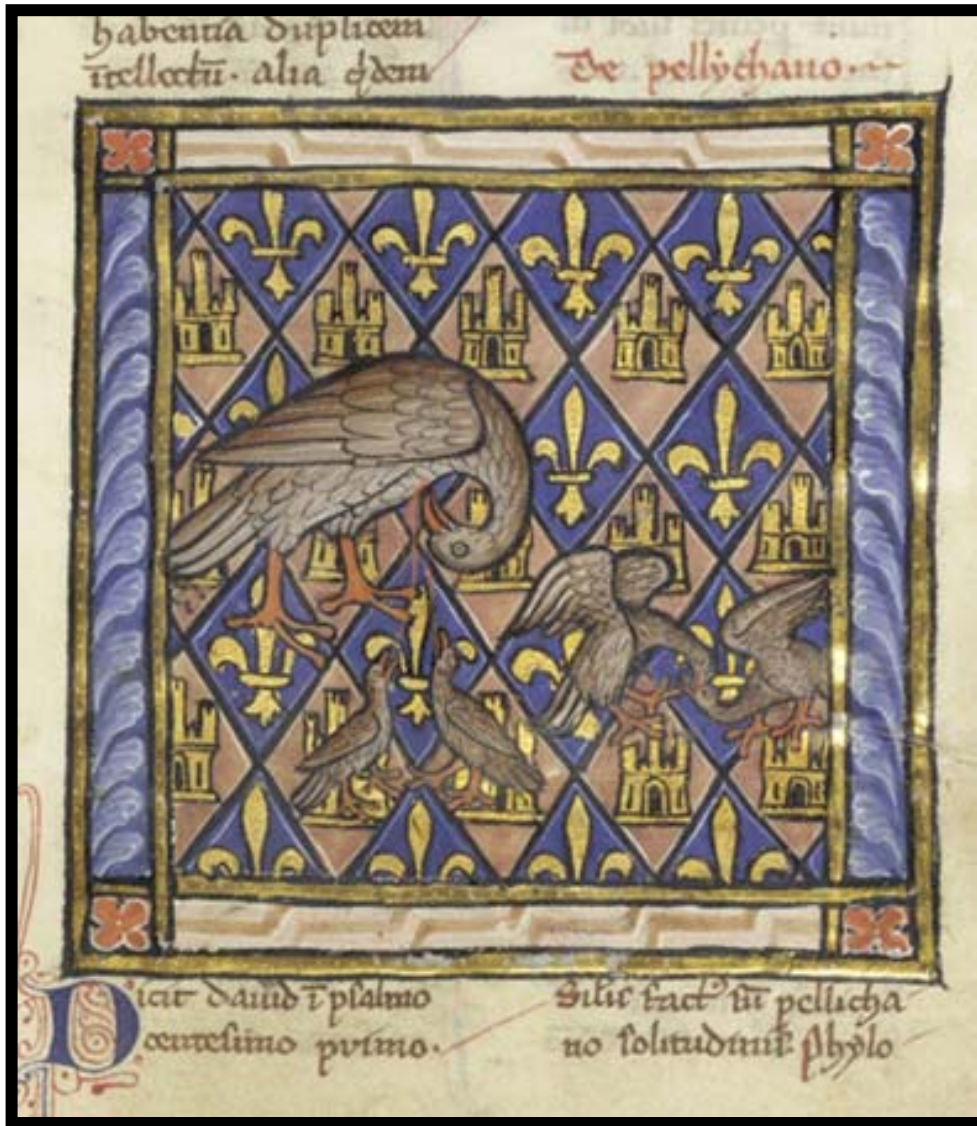 habentia duplicem
ītellectū· alia q̇dem
De pellychano·
Dicit dauid ī psalmo
centesimo primo·
Silis fact᾽ sū pellicha
no solitudinis· phylo